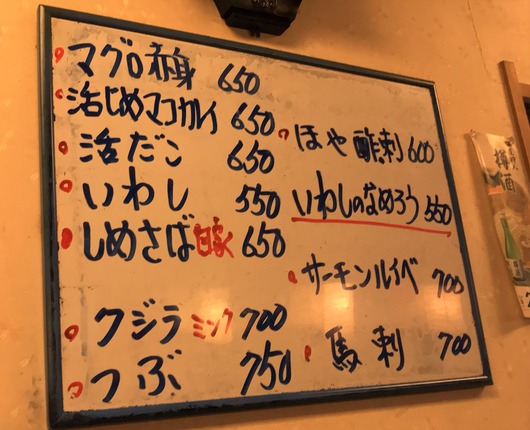 マグロ赤身 650
活じめマコガレイ 650
活だこ 650
いわし 550
しめさば自家 650
クジラミンク 700
つぶ 750
ほや酢刺 600
いわしのなめろう 550
サーモンルイベ 700
馬刺 700
樽酒